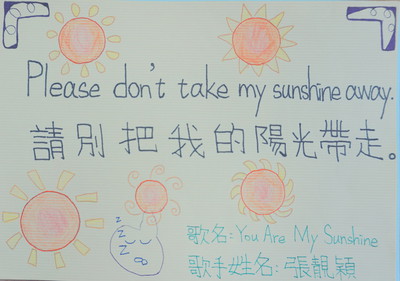 Please don't take my sunshine away.
請別把我的陽光帶走。
歌名:You Are My Sunshine
歌手姓名:張靚穎
z z z